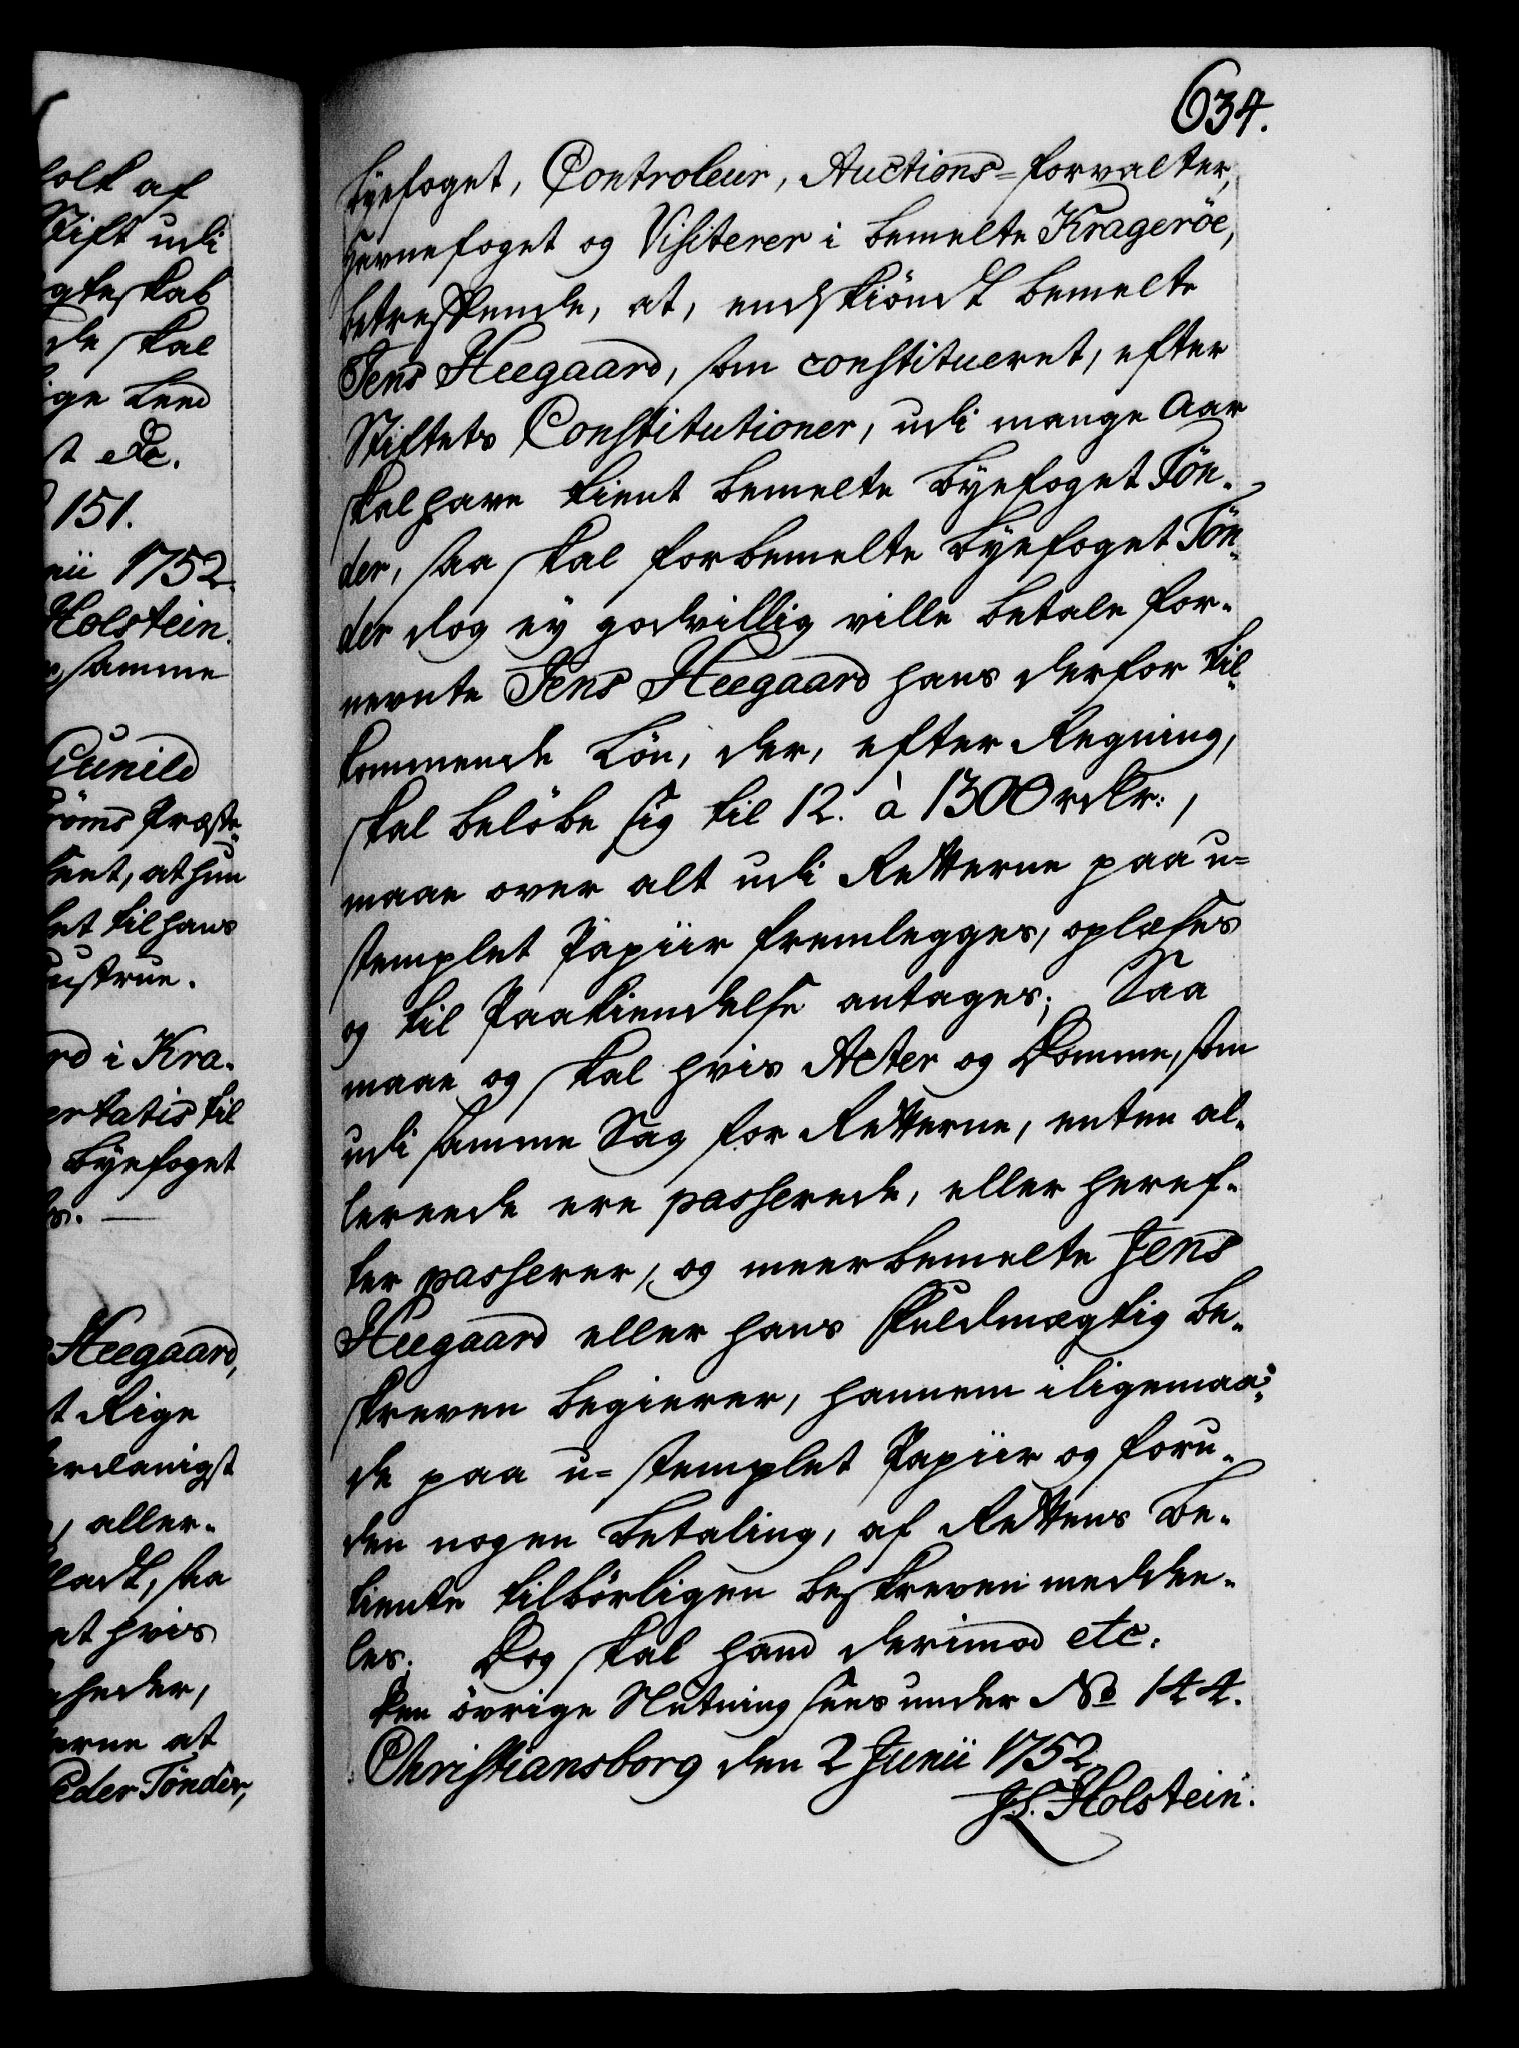 634.
byefoget, Controleur, Auctions=forvalter,
Havnefoget og Visiterer i bemelte Krageröe,
betreffende, at, endskiöndt bemelte
Jens Heegaard, som constitueret, efter
Stiftets Constitutioner, udi mange Aar
skal have tient bemelte Byefoget Tön-
der, saa skal forbemelte Byefoget Tön-
der dog ey godvillig ville betale for-
nevnte Jens Heegaard hans derfor til-
kommende Lön, der, efter Regning,
skal belöbe sig til 12. à 1300 rdlr:,
maae over alt udi Retterne paa u=
stemplet Papiir fremlegges, oplæses
og til Paakiendelse antages; Saa
maae og skal hvis Acter og Domme, som
udi samme Sag for Retterne, enten al-
lereede ere passerede, eller heref-
ter passerer, og meerbemelte Jens
Heegaard eller hans Fuldmægtig be-
skreven begierer, hannem iligemaa-
de paa u=stemplet Papiir og foru-
den nogen Betaling, af Rettens Be-
tiente tilbörligen beskreven meddee-
les. Dog skal hand derimod etc.
Den övrige Slutning sees under No 144.
Christiansborg den 2 Junii 1752
JL. Holstein.
folk af
Stift udi
gteskab
de skal
ige Leed
st etc.
151.
nii 1752.
Holstein.
samme
Gunild
röms Præste-
ient, at hun
et til hans
Hustrue.
rd i Kra-
ertatis til
Byefoget
Heegaard,
t Rige
erdanigst
, aller-
ladt, saa
at hvis
gheder,
terne at
Peder Tönder,